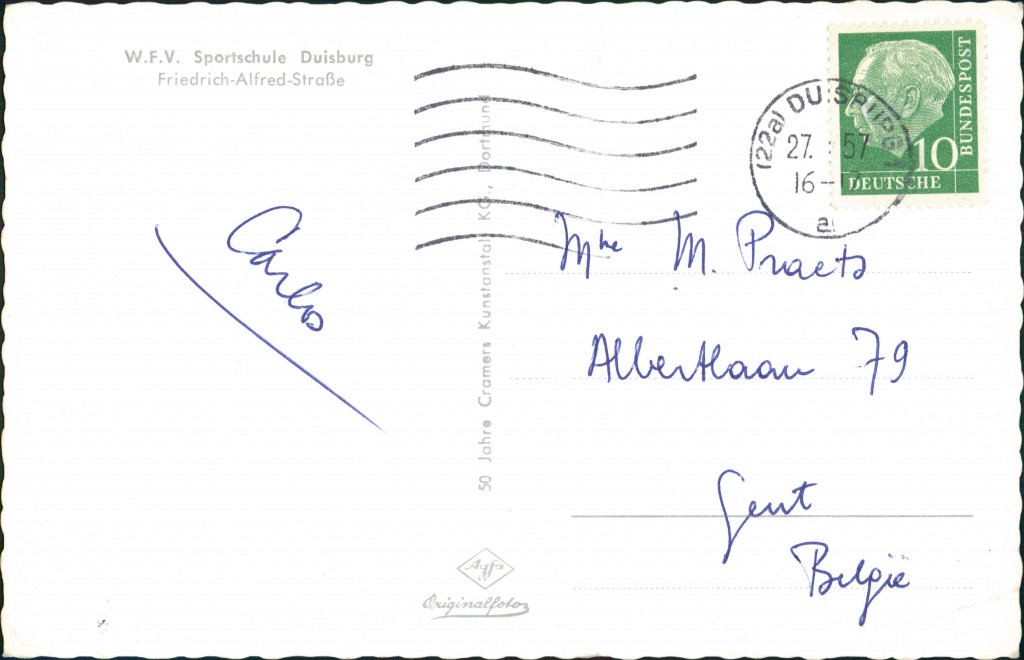 W.F.V. Sportschule Duisburg
Friedrich-Alfred-Straße
Carlos
50 Jahre Cramers Kunstanstalt KG., Dortmund
Agfa
Originalfoto
(22a) DUISBURG
27. 57
16-17
a
BUNDESPOST
10
DEUTSCHE
M. Praets
Albertlaan 79
Gent
België